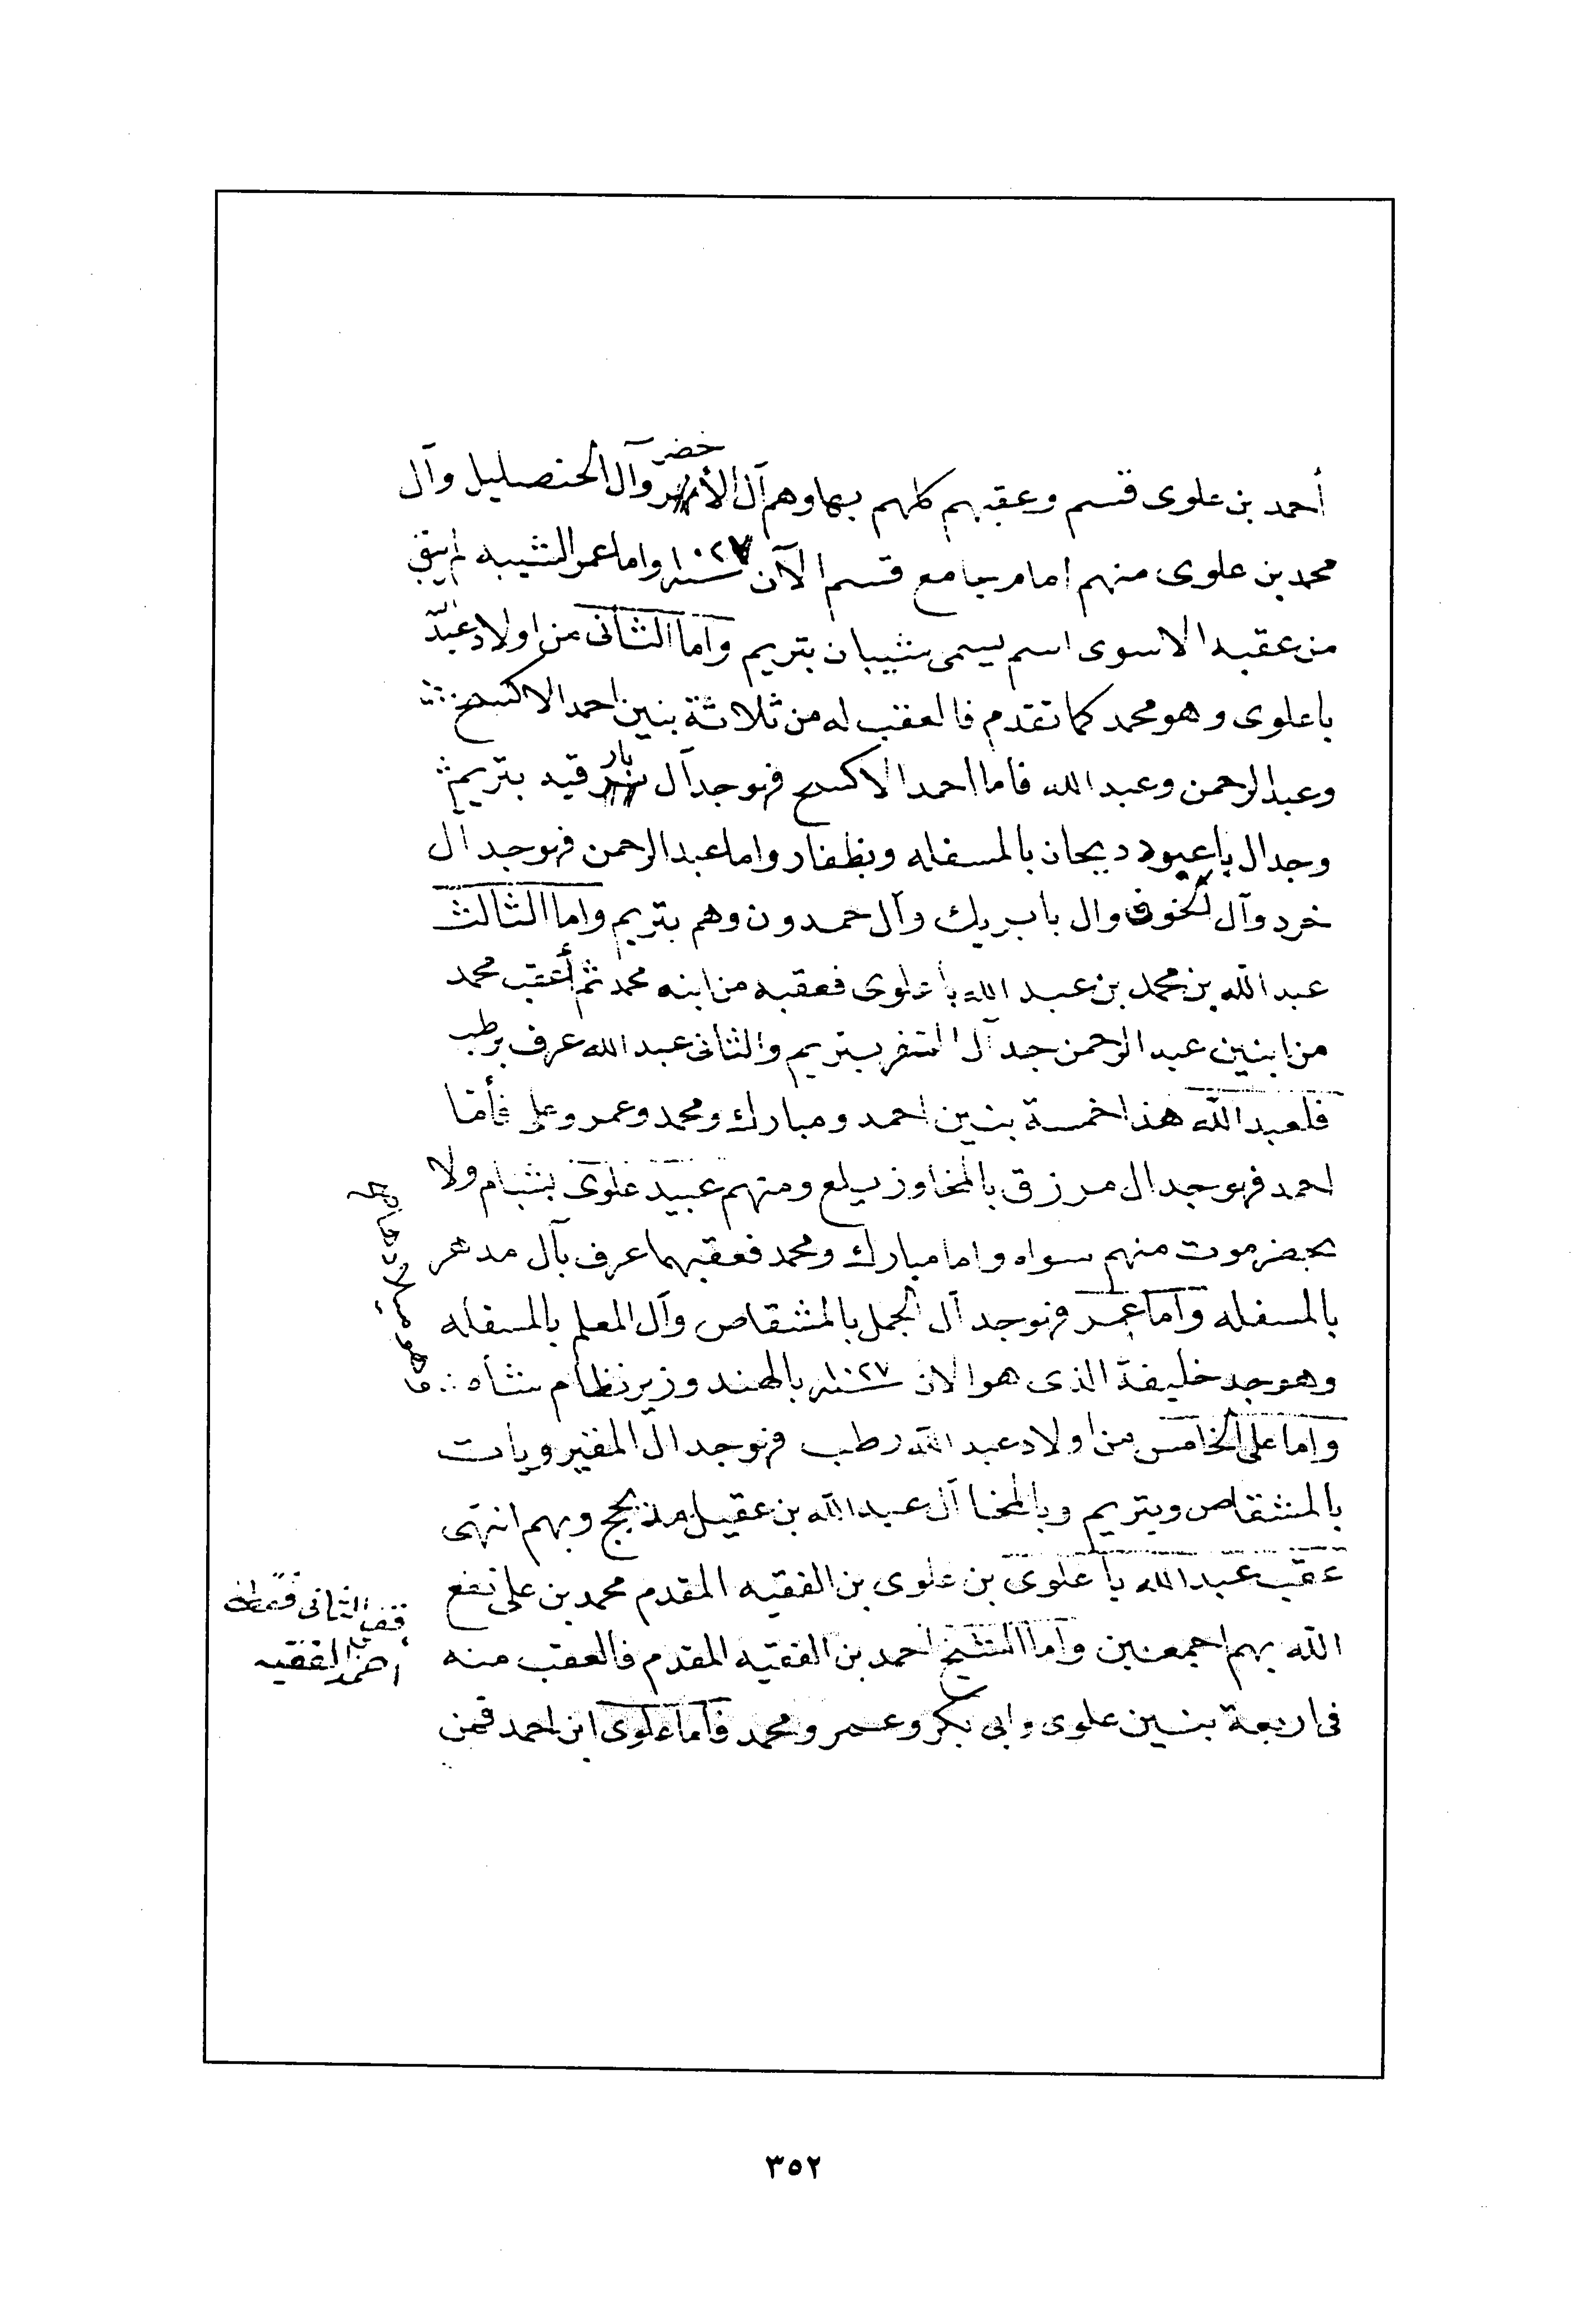 أحمد بن علوى قسم وعقبهم كلهم بها وهم آل الأخضر وآل الحنصليل وآل
محمد بن علوى منهم امام جامع قسم الآن سنة ١٠٢٧ واما عمر الشيبه لم يبق
من عقبه الا سوى اسم يسمى شيبان بتريم وأما الثانى من اولاد عبد الله
باعلوى وهو محمد كما تقدم فالعقب له من ثلاثة بنين احمد الاكسح
وعبد الرحمن وعبد الله فاما احمد الاكسح فهو جد آل بارقيه بتريم
وجد ال باعبود دبجان بالمسفله وبظفار واما عبد الرحمن فهو جد ال
خرد وآل الخون وال بابريك وآل حمدون وهم بتريم واما الثالث
عبد الله بن محمد بن عبد الله باعلوى فعقبه من ابنه محمد ثم أعقب محمد
من ابنين عبد الرحمن جد آل النفر بتريم والثانى عبد الله عرف برطب
فلعبد الله هذا خمسة بنين احمد ومبارك ومحمد وعمر وعلى فأما
احمد فهو جد ال مرزق بالمخا وزيلع ومنهم عبيد علوى بشبام ولا
بحضرموت منهم سواه واما مبارك ومحمد فعقبهما عرف بآل مدهر
بالمسفله وأما عمر فهو جد آل الجمل بالمشقاص وآل المعلم بالمسفله
وهو جد خليفة الذى هو الان سنة ١٠٢٧ بالهند وزير نظام شاه
واما على الخامس من اولاد عبد الله رطب فهو جد ال المفير وبات
بالمشقاص وبتريم وبالمخا آل عبد الله بن عقيل مذيحج وبهم انتهى
عقب عبد الله باعلوى بن علوى بن الفقيه المقدم محمد بن على نفع
الله بهم اجمعين وأما الشيخ احمد بن الفقيه المقدم فالعقب منه
فى اربعة بنين علوى وابى بكر وعمر ومحمد فأما علوى ابن احمد فمن
الثانى
أحمد بن الفقيه
٣٥٢